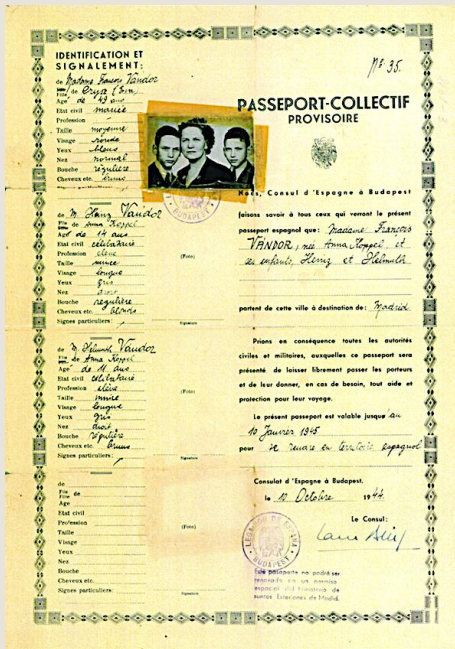 Nº 35.
IDENTIFICATION ET
SIGNALEMENT:
de Madame François Vandor
Fille de
Age de 43 ans
Etat civil mariée
Profession
Taille moyenne
Visage ronde
Yeux bleus
Nez normal
Bouche régulière
Cheveux etc. bruns
de M. Henz Vandor
de Anna Koppel
Age de 14 ans
Etat civil célibataire
Profession élève
Taille mince
Visage longue
Yeux gris
Nez droit
Bouche régulière
Cheveux etc. blonds
Signes particuliers:
(Foto)
Signature
de M. Helmuth Vandor
de Anna Koppel
Age de 11 ans
Etat civil célibataire
Profession élève
Taille mince
Visage longue
Yeux gris
Nez droit
Bouche régulière
Cheveux etc. bruns
Signes particuliers:
(Foto)
Signature
de
Fils de
Fille
Age
Etat civil
Profession
Taille
Visage
Yeux
Nez
Bouche
Cheveux etc.
Signes particuliers:
(Foto)
Signature
PASSEPORT-COLLECTIF
PROVISOIRE
BUDAPEST
Nous, Consul d'Espagne à Budapest
faisons savoir à tous ceux qui verront le présent
passeport espagnol que: Madame François
VANDOR, née Anna Koppel, et
ses enfants, Henz et Helmuth
partent de cette ville à destination de: Madrid
Prions en conséquence toutes les autorités
civiles et militaires, auxquelles ce passeport sera
présenté de laisser librement passer les porteurs
et de leur donner, en cas de besoin, tout aide et
protection pour leur voyage.
Le présent passeport est valable jusque au
10 Janvier 1945
pour se rendre en territoire espagnol
Consulat d'Espagne à Budapest.
le 10 Octobre 1944.
Le Consul:
LEGACION DE ESPAÑA
BUDAPEST
Este pasaporte no podrá ser
en un permiso
especial del Ministerio de
Exteriores de Madrid.